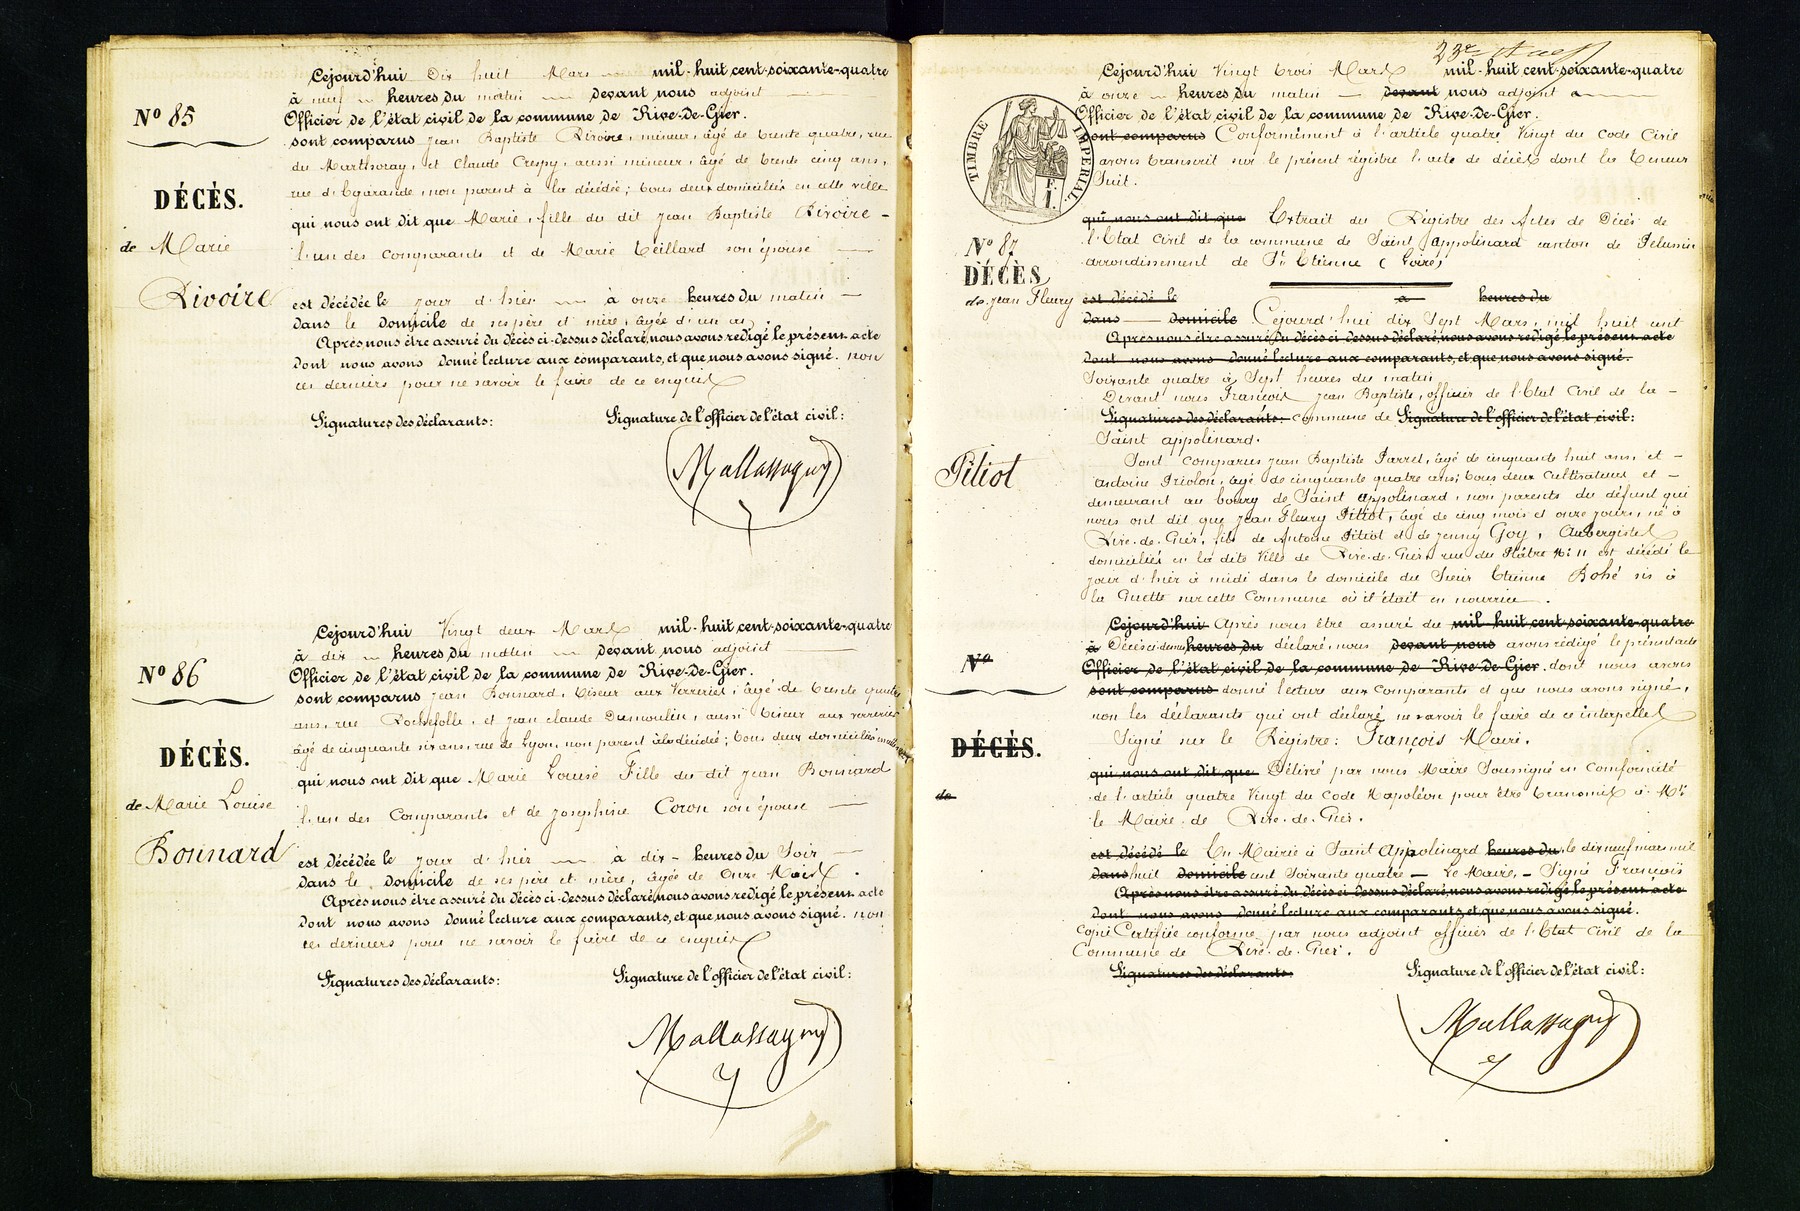 Cejourd'hui Dix huit Mars mil-huit cent-soixante-quatre
à neuf heures du matin devant nous adjoint
Nº 85
Officier de l'état civil de la commune de Rive-de-Gier.
sont comparus Jean Baptiste Rivoire, mineur, âgé de trente quatre, rue
du Marthoray, et Claude Crespy, aussi mineur, âgé de trente cinq ans,
rue d'Egarande, non parent à la décédée; tous deux domiciliés en cette ville
DÉCÈS.
qui nous ont dit que Marie, fille du dit Jean Baptiste Rivoire -
de Marie
l'un des comparants et de Marie Teillard son épouse
Rivoire
est décédée le jour d'hier à onze heures du matin
dans le domicile de ses père et mère, âgée d'un an.
Après nous être assuré du décès ci-dessus déclaré, nous avons redigé le présent acte
dont nous avons donné lecture aux comparants, et que nous avons signé. non
ces derniers pour ne savoir le faire de ce enquis
Signatures des déclarants: Signature de l'officier de l'état civil:
Mallassagny
Cejourd'hui Vingt deux Mars mil-huit cent-soixante-quatre
à dix heures du matin devant nous adjoint
Nº 86
Officier de l'état civil de la commune de Rive-de-Gier.
sont comparus Jean Bonnard, tiseur aux Verreries, âgé de trente quatre
ans, rue Rochefolle, et Jean Claude Dumoulin, aussi tiseur aux verreries
âgé de cinquante six ans, rue de Lyon, non parent à la décédée; tous deux domiciliés
DÉCÈS.
qui nous ont dit que Marie Louise Fille du dit Jean Bonnard
de Marie Louise
l'un des Comparants et de Joséphine Coron son épouse
Bonnard
est décédée le jour d'hier à dix heures du Soir
dans le domicile de ses père et mère, âgée de Onze Mois.
Après nous être assuré du décès ci-dessus déclaré, nous avons redigé le présent acte
dont nous avons donné lecture aux comparants, et que nous avons signé. non
ces derniers pour ne savoir le faire de ce enquis
Signatures des déclarants: Signature de l'officier de l'état civil:
Mallassagny
23e
Cejourd'hui Vingt trois Mars mil-huit cent-soixante-quatre
à onze heures du matin devant nous adjoint
Officier de l'état civil de la commune de Rive-de-Gier.
TIMBRE IMPERIAL.
F. 1.
sont comparus Conformément à l'article quatre Vingt du Code Civil
avons transcrit sur le présent régistre l'acte de décès dont la teneur
Suit.
qui nous ont dit que Extrait du Régistre des Actes de Décès de
l'Etat Civil de la commune de Saint Appolinard canton de Pelussin
arrondissement de St Etienne (Loire)
Nº 87
DÉCÈS
de Jean Fleury
Pitiot
est décédé le à heures du
dans domicile Cejourd'hui dix Sept Mars, mil huit cent
Après nous être assuré du décès ci-dessus déclaré, nous avons redigé le présent acte
dont nous avons donné lecture aux comparants, et que nous avons signé.
Soixante quatre à Sept heures du matin
Devant nous François Jean Baptiste, officier de l'Etat Civil de la -
Signatures des déclarants: commune de Signature de l'officier de l'état civil:
Saint appolinard.
Sont comparus Jean Baptiste Parret, âgé de cinquante huit ans, et -
Antoine Priolon, âgé de cinquante quatre ans; tous deux Cultivateurs et -
demeurant au bourg de Saint Appolinard, non parents du défunt qui
nous ont dit que Jean Fleury Pitiot, âgé de cinq mois et onze jours, né à
Rive-de-Gier, fils de Antoine Pitiot et de Jenny Goy, Aubergistes
domiciliés en la dite Ville de Rive-de-Gier rue du Plâtre Nº 11 est décédé le
jour d'hier à midi dans le domicile du Sieur Etienne Bohé sis à
la Guette sur cette Commune où il était en nourrice.
Cejourd'hui Après nous être assuré du mil-huit cent-soixante-quatre
à Décès ci-dessus heures du déclaré, nous devant nous avons rédigé le présent acte
Nº
Officier de l'état civil de la commune de Rive-de-Gier. dont nous avons
sont comparus donné lecture aux comparants et que nous avons signé,
non les déclarants qui ont déclaré ne savoir le faire de ce interpellés
Signé sur le Régistre: François Maire.
DÉCÈS.
qui nous ont dit que Délivré par nous Maire Soussigné en conformité
de
de l'article quatre Vingt du Code Napoléon pour être transmis à Mr
le Maire de Rive-de-Gier.
est décédé le En Mairie à Saint Appolinard heures du, le dix neuf mars mil
dans huit domicile cent Soixante quatre — Le Maire, - Signé François
Après nous être assuré du décès ci-dessus déclaré, nous avons redigé le présent acte
dont nous avons donné lecture aux comparants, et que nous avons signé.
Copie Certifiée conforme par nous adjoint officier de l'Etat Civil de la
Commune de Rive-de-Gier.
Signatures des déclarants: Signature de l'officier de l'état civil:
Mallassagny